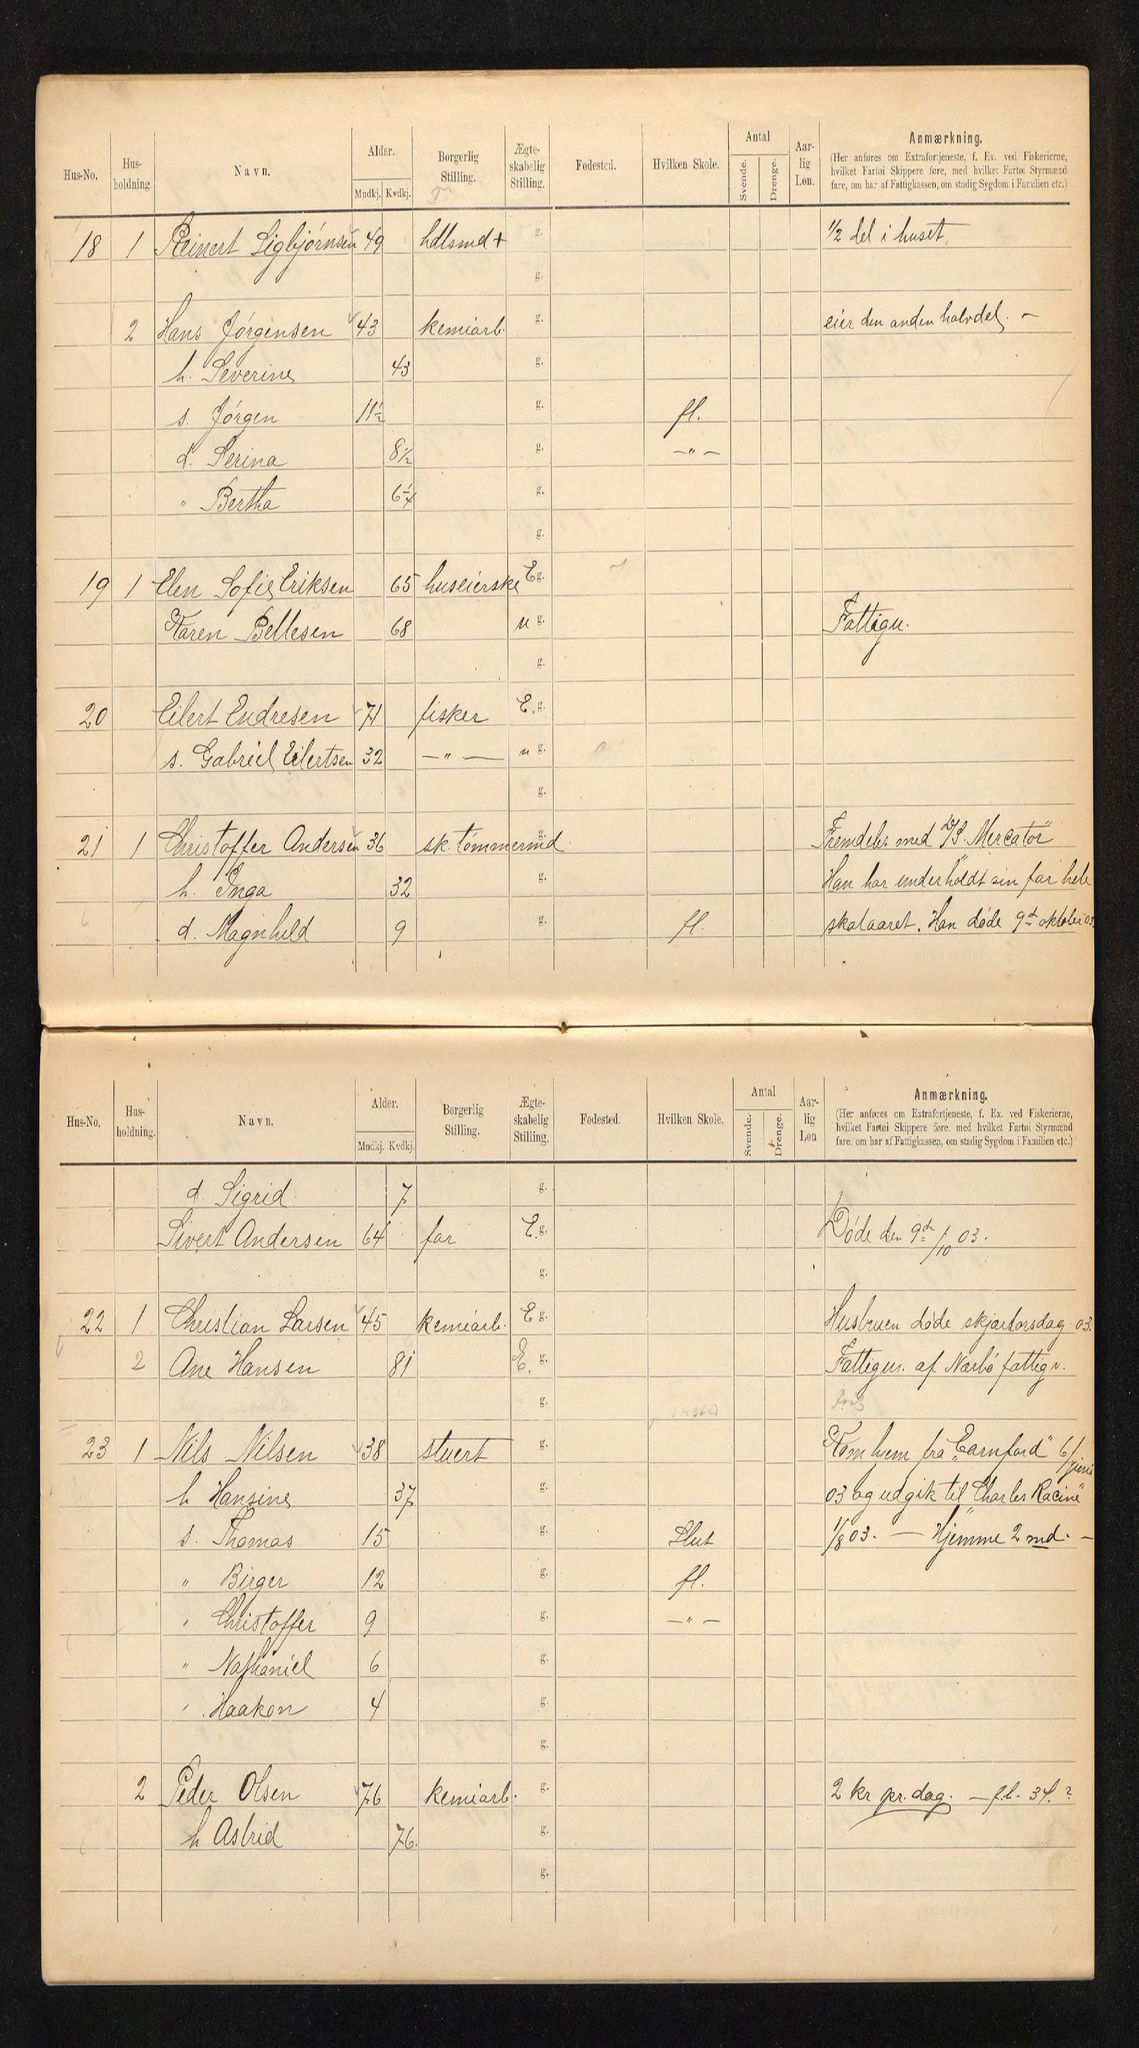 Hus-No. Hus-holdning. Navn. Alder. Mndkj. Kvdkj. Borgerlig Stilling. Ægte-skabelig Stilling. Fødested. Hvilken Skole. Antal Svende. Drenge. Aar-lig Løn. Anmærkning.
(Her anføres om Extrafortjeneste, f. Ex. ved Fiskerierne,
hvilket Fartøi Skippere føre, med hvilket Fartøi Styrmænd
fare, om har af Fattigkassen, om stadig Sygdom i Familien etc.)
18 1 Reinert Sigbjørnsen 49 hdlsmd + g. 1/2 del i huset
g.
2 Hans Jørgensen 43 kemiarb. g. eier den anden halvdel. –
h. Severine 43 g.
s. Jørgen 11 1/2 g. fl.
d. Serina 8 1/2 g. — " —
" Bertha 6 1/4 g.
g.
19 1 Elen Sofie Eriksen 65 huseierske E g.
Karen Bellesen 68 u g. Fattigu.
g.
20 Eilert Endresen 71 fisker E. g.
s. Gabriel Eilertsen 32 — " — u g.
g.
21 1 Christoffer Andersen 36 sk. tømmermd g. Fremdeles med D/S. Mercator
h. Inga 32 g. Han har underholdt sin far hele
d. Magnhild 9 g. fl. skataaret. Han døde 9d oktober 03.
Hus-No. Hus-holdning. Navn. Alder. Mndkj. Kvdkj. Borgerlig Stilling. Ægte-skabelig Stilling. Fødested. Hvilken Skole. Antal Svende. Drenge. Aar-lig Løn Anmærkning.
(Her anføres om Extrafortjeneste, f. Ex. ved Fiskerierne,
hvilket Fartøi Skippere føre, med hvilket Fartøi Styrmænd
fare, om har af Fattigkassen, om stadig Sygdom i Familien etc.)
d. Sigrid 7 g.
Sivert Andersen 64 far E. g. Døde den 9de/10 03.
g.
22 1 Christian Larsen 45 kemiarb. E g. Husbruen døde skjærtorsdag 03.
2 Ane Hansen 81 E. g. Fattigu. af Nærbø fattigv.
g.
23 1 Nils Nilsen 38 stuert g. Kom hjem fra "Earnford" 6/juni
h Hansine 37 g. 03 og udgik til "Charles Racine"
s. Thomas 15 g. Slut 1/8 03. — Hjemme 2 md. –
" Birger 12 g. fl.
" Christoffer 9 g. — " —
" Nathaniel 6 g.
" Haakon 4 g.
g.
2 Peder Olsen 76 kemiarb. g. 2 kr pr. dag. — f.l. 34. ?
h Astrid 76. g.
g.